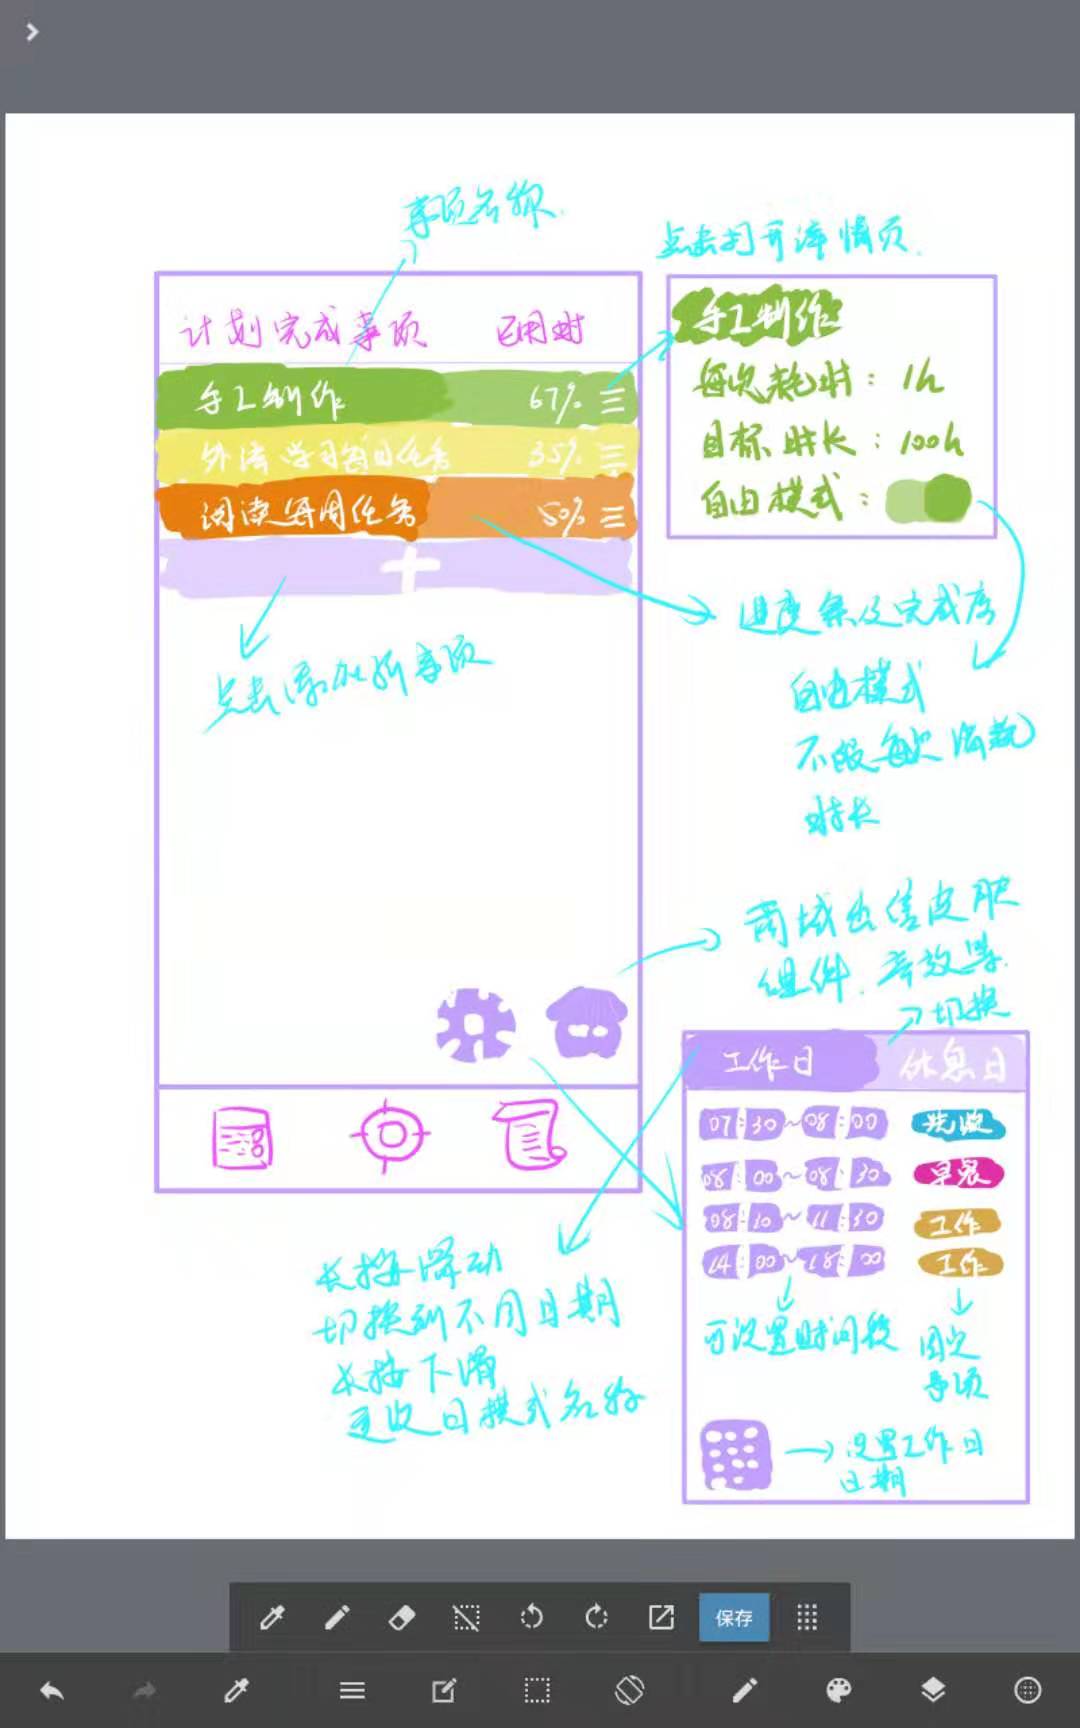 事项名称
点击打开详情页
计划完成事项 已用时
手工制作 67%
外语学习每日任务 35%
阅读每周任务 50%
点击添加新事项
手工制作
每次耗时：1h
目标时长：100h
自由模式：
进度条及完成度
自由模式
不限每次
时长
商城出售皮肤
组件、音效等
切换
工作日 休息日
07:30~08:00 洗漱
08:00~08:30 早餐
08:10~11:30 工作
14:00~18:00 工作
可设置时间段
固定
事项
设置工作日
日期
长按滑动
切换到不同日期
长按下滑
更改日模式名称
保存